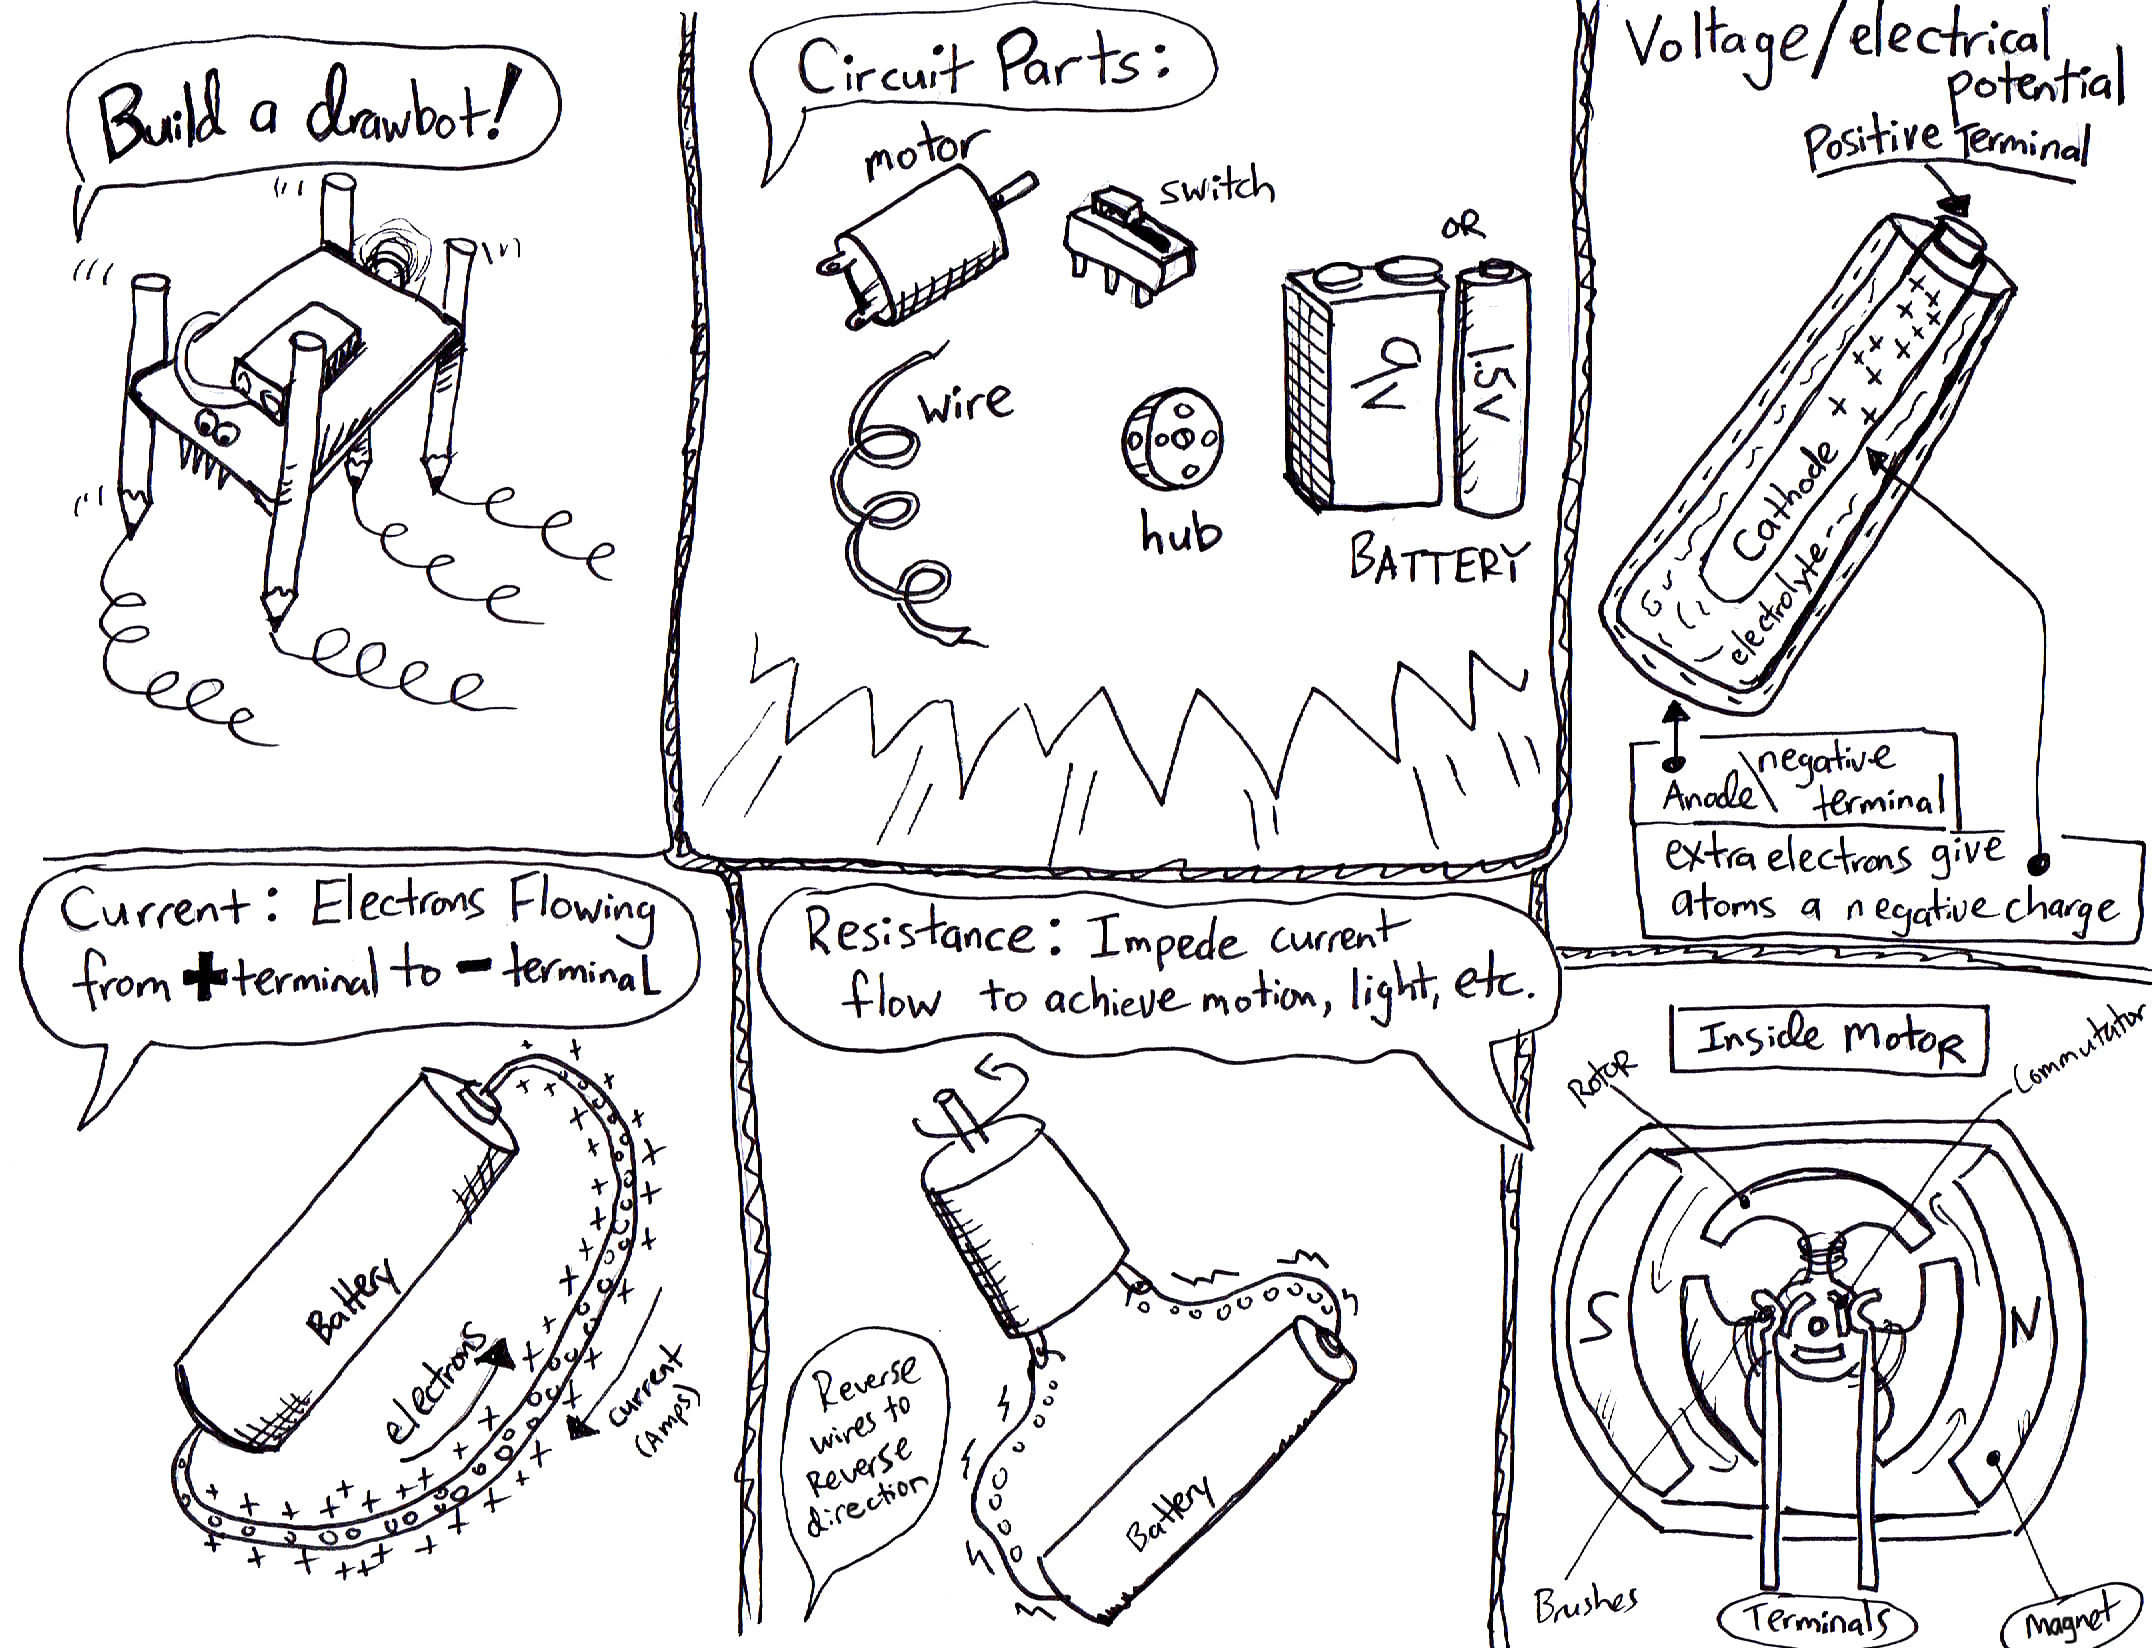 Build a drawbot!
Circuit Parts:
motor
switch
OR
9V
1.5V
wire
hub
BATTERY
Voltage/electrical
potential
Positive Terminal
Cathode
electrolyte
Anode\negative
terminal
extra electrons give
atoms a negative charge
Current: Electrons Flowing
from + terminal to - terminal
Battery
electrons
current
(Amps)
Resistance: Impede current
flow to achieve motion, light, etc.
Reverse
wires to
Reverse
direction
Battery
Inside Motor
Rotor
Commutator
S
N
Brushes
Terminals
Magnet